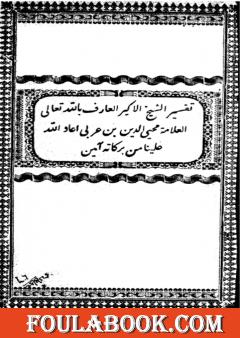 تفسير الشيخ الاكبر العارف بالله تعالى
العلامة محيي الدين بن عربى اعاد الله
علينا من بركاته آمين
FOULABOOK.COM